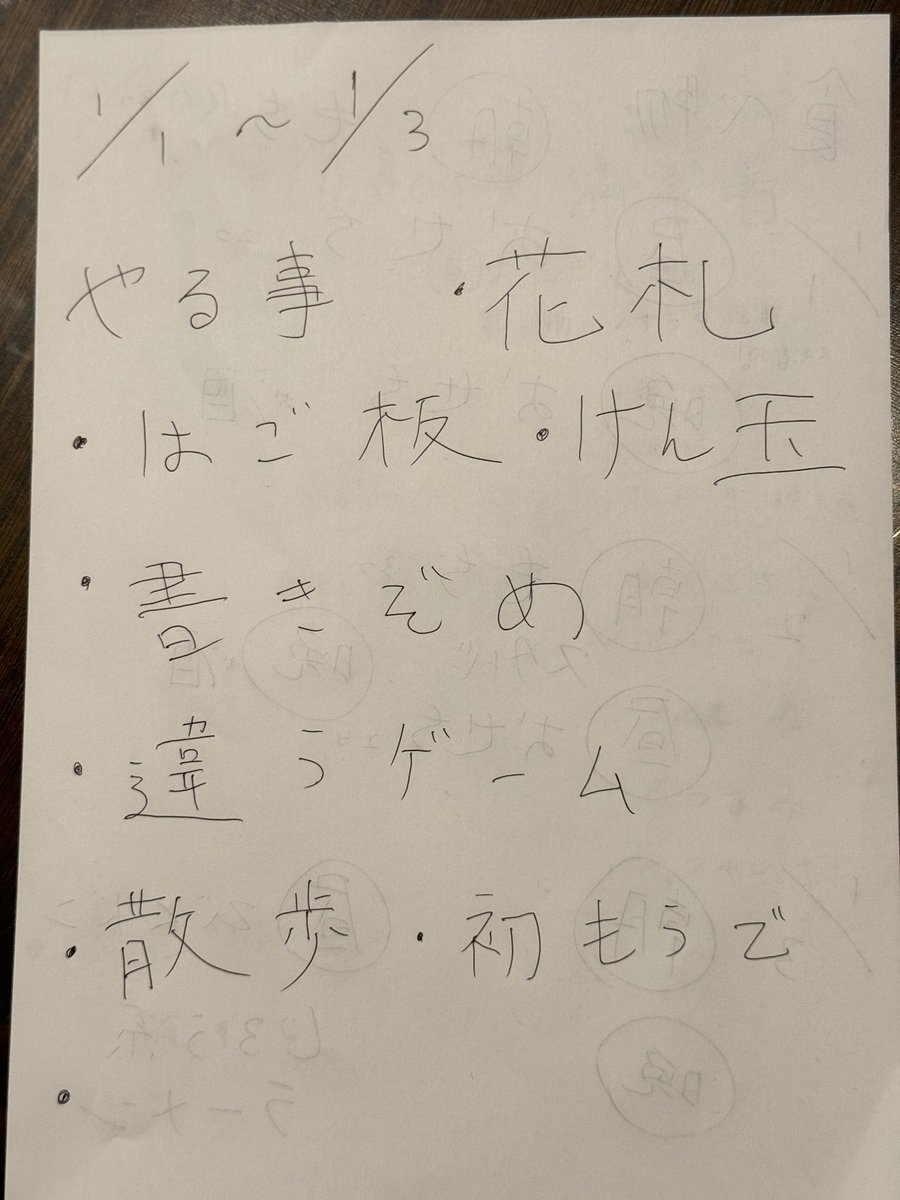 1/1〜1/3
やる事 ・花札
・はご板・けん玉
・書きぞめ
・違うゲーム
・散歩・初もうで
・